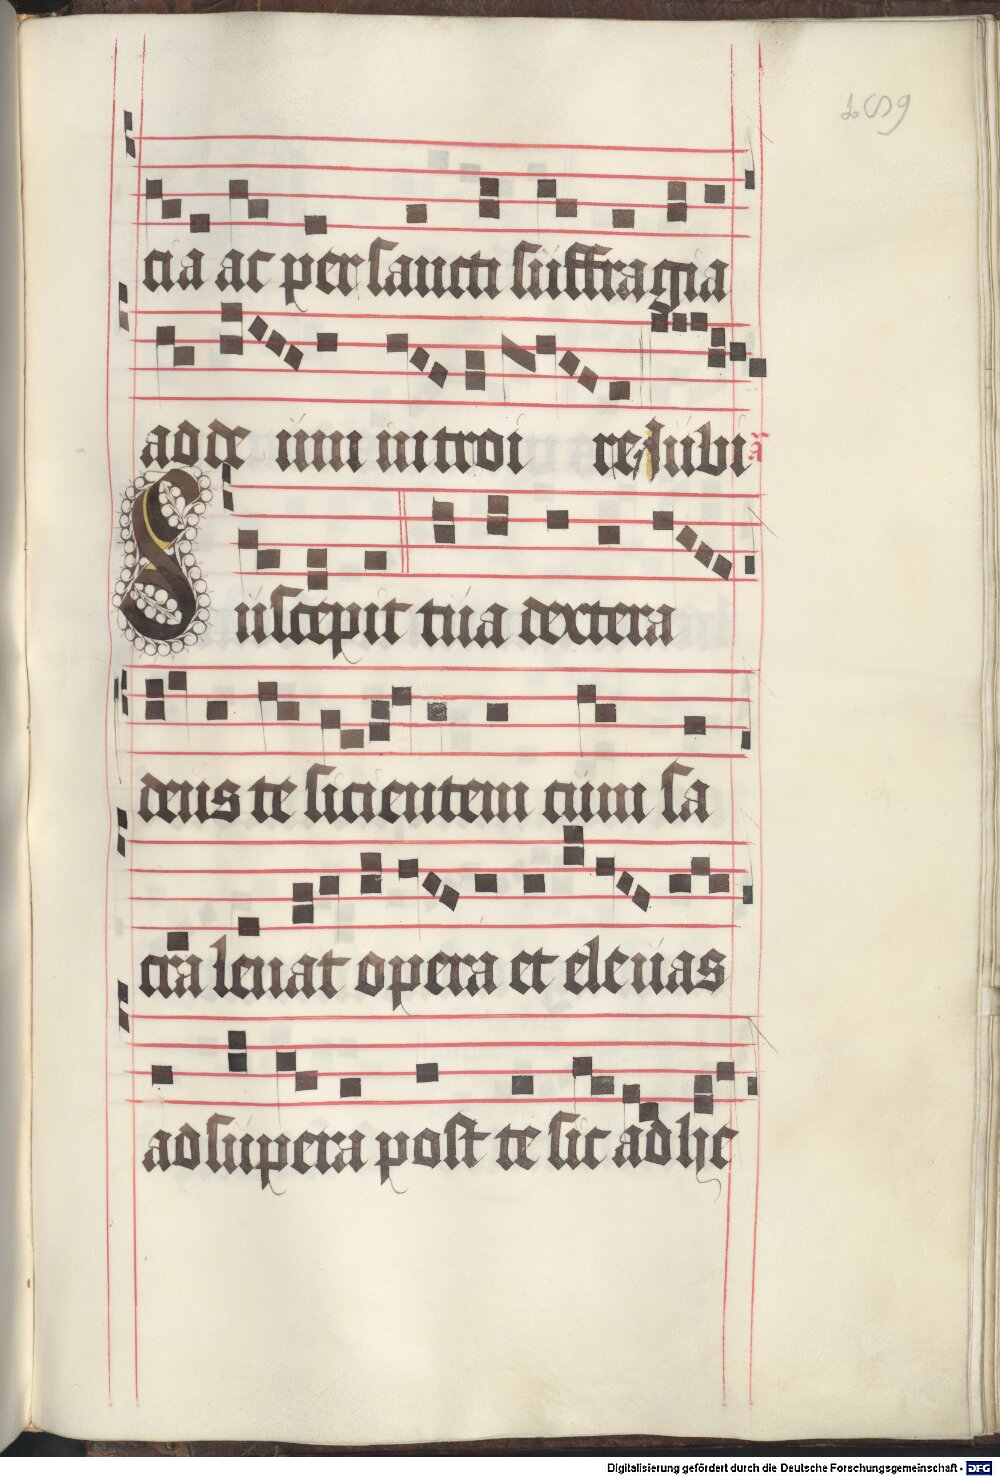 cia ac per sancti suffragia
ad de um introi re Jubi
Suscepit tua dextera
deus te sicientem cum sa
cra levat opera et elevas
ad supera post te sic ad he
Digitalisierung gefördert durch die Deutsche Forschungsgemeinschaft - DFG